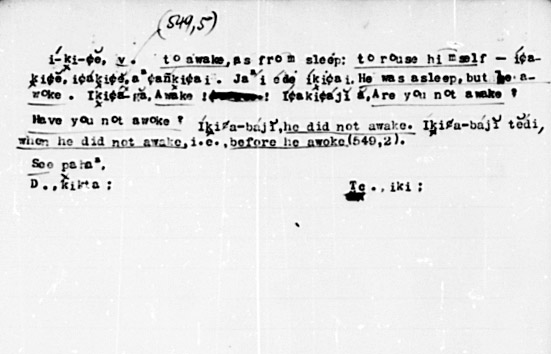 (549,5)
í-ḳi-¢ĕ, v. to awake, as from sleep: to rouse himself — í¢a-
ḳi¢ĕ, i¢áḳi¢ĕ, aⁿ¢añ́ḳi¢ai. Jaⁿ́i ĕdé íḳi¢ai. He was asleep, but he a-
woke. Iḳi¢á-gă, Awake! ! I¢aḳi¢ájĭ ă, Are you not awake?
Have you not awoke? Íḳi¢a-bájĭ, he did not awake. Íḳi¢a-bájĭ tĕdí,
when he did not awake, i.e., before he awoke (549,2).
See
D., ḳikta; Te., iki;